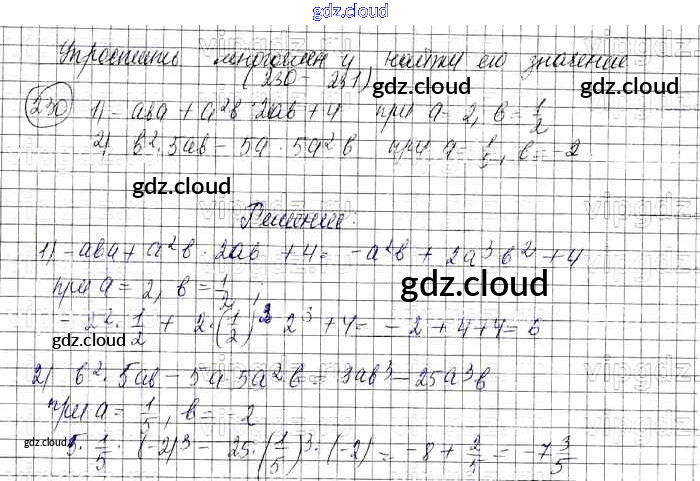 gdz.cloud
Упростить многочлен и найти его значение
(230 - 231)
gdz.cloud
230 1) - aba + a²b · 2ab + 4 при a = 2, b = 1/2
2) b² · 5ab - 5a · 5a²b при a = 1/5, b = -2
gdz.cloud
Решение:
1) - aba + a²b · 2ab + 4 = -a²b + 2a³b² + 4
при a = 2, b = 1/2;
gdz.cloud
- 2² · 1/2 + 2 · (1/2)² · 2³ + 4 = - 2 + 4 + 4 = 6
gdz.cloud
2) b² · 5ab - 5a · 5a²b = 5ab³ - 25a³b
gdz.cloud
при a = 1/5, b = -2
gdz.cloud
5 · 1/5 · (-2)³ - 25 · (1/5)³ · (-2) = -8 + 2/5 = -7 3/5
gdz.cloud